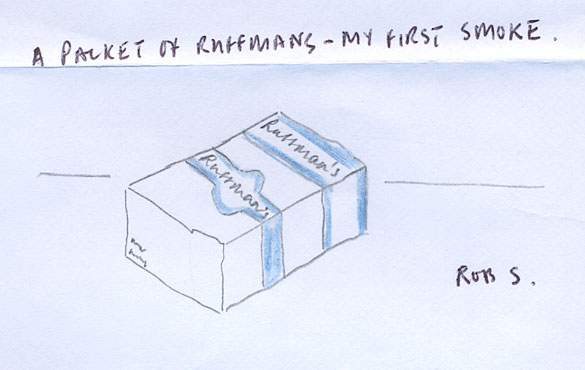 A PACKET OF RUFFMANS - MY FIRST SMOKE.
Ruffman's
Ruffman's
ROB S.